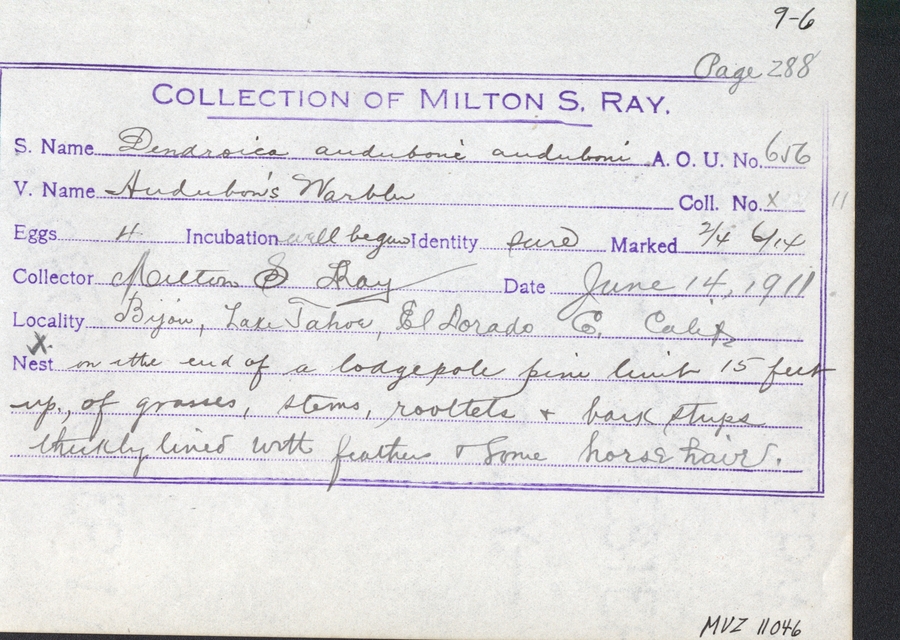 9-6
Page 288
COLLECTION OF MILTON S. RAY.
S. Name Dendroica auduboni auduboni A. O. U. No. 656
V. Name Audubon's Warbler Coll. No. x 11
Eggs 4 Incubation well begun Identity sure Marked 2/4 6/14
Collector Milton S Ray Date June 14, 1911.
Locality Bijou, Lake Tahoe, El Dorado C. Calif
X.
Nest on the end of a lodgepole pine limb 15 feet
up., of grasses, stems, rootlets + bark strips
thickly lined with feathers & some horse hair.
MVZ 11046